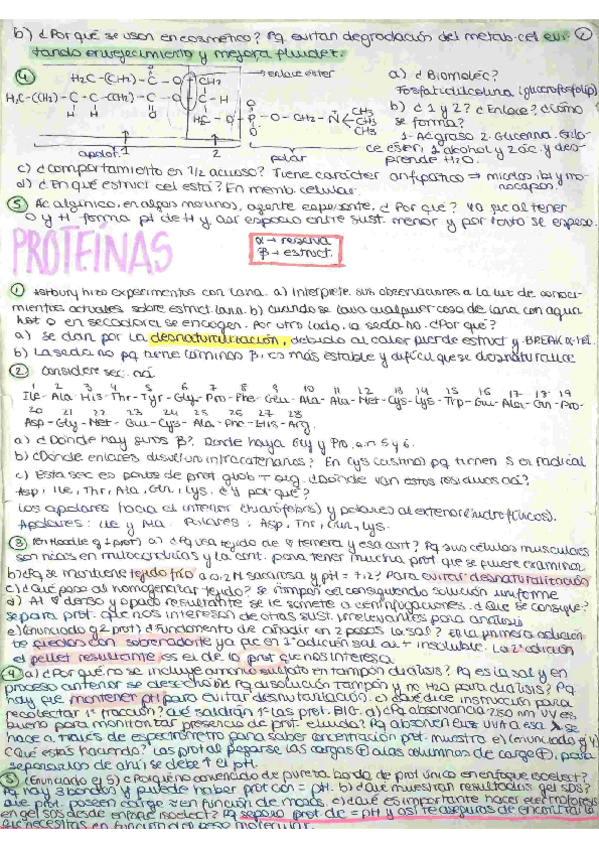 b) ¿Por qué se usan en cosmético? Pq evitan degradación del metab. cel evi- 2
tando envejecimiento y mejora fluidez.
4
H3C-(CH2)-C-O-CH2 → enlace éster
a) ¿Biomoléc?
Fosfatidilcolina (glucerofosfolip)
b) ¿1 y 2? ¿Enlace? ¿Cómo
se forma?
1- Ac graso 2- Glicerina.
ce ester, 1 alcohol y 2 ác. y des-
prende H2O.
apolar. 1 2 polar
c) ¿Comportamiento en acuoso? Tiene carácter anfipático ⇒ micelas, bi y mo-
nocapas.
d) ¿En qué estruct cel está? En memb. celular.
5 Ac algínico, en algas marinas, agente espesante. ¿Por qué? Ya que al tener
O y H forma pt de H y dar espacio entre sust. menor y por tanto se espesa.
PROTEÍNAS
α → reserva
β → estruct.
1 Astbury hizo experimentos con lana. a) Interprete sus observaciones a la luz de conoci-
mientos actuales sobre estruct. lana. b) cuando se lava cualquier cosa de lana con agua
hot o en secadora se encogen. Por otro lado, la seda no. ¿Por qué?
a) se dan por la desnaturalización, debido al calor pierde estruct y BREAK α-hel.
b) La seda no pq tiene láminas β, es más estable y difícil que se desnaturalice
2 Considere sec. aá.
1 2 3 4 5 6 7 8 9 10 11 12 13 14 15 16 17 18 19
Ile-Ala-His-Thr-Tyr-Gly-Pro-Phe-Glu-Ala-Ala-Met-Cys-Lys-Trp-Glu-Ala-Gln-Pro-
20 21 22 23 24 25 26 27 28
Asp-Gly-Met-Glu-Cys-Ala-Phe-His-Arg.
a) ¿Dónde hay giros β? Donde haya Gly y Pro, en 5 y 6.
b) ¿Dónde enlaces disulfuro intracatenarios? En Cys (cistina) pq tienen S en radical
c) Esta sec es parte de prot glob + org. ¿Dónde van estos residuos aá?
Asp, Ile, Thr, Ala, Gln, Lys. ¿Y por qué?
Los apolares hacia el interior (hidrófobos) y polares al exterior (hidrofílicos).
Apolares: Ile y Ala. Polares: Asp, Thr, Gln, Lys.
3 (en Moodle q 1 prot) a) ¿Pq usa tejido de ternera y esa cant? Pq sus células musculares
son ricas en mitocondrias y la cant. para tener mucha prot que se quiere examinar.
b) ¿Pq se mantiene tejido frío a 0.2 M sacarosa y pH = 7.2? Para evitar desnaturalización
c) ¿Qué pasa al homogeneizar tejido? Se rompen cel consiguiendo solución uniforme
d) Al denso y opaco resultante se le somete a centrifugaciones. ¿Qué se consigue?
separa prot. que nos interesan de otras sust. irrelevantes para análisis
e) (Enunciado g 2 prot) ¿Fundamento de añadir en 2 pasos la sal? En la primera adición
te quedas con sobrenadante ya que en 1ª adición sal aa + insoluble. La 2ª adición
el pellet resultante es el de la prot que nos interesa.
4 a) ¿Por qué no se incluye amonio sulfato en tampón diálisis? Pq es la sal y en
proceso anterior se desecha. b) Pq disolución tampón y no H2O para diálisis? Pq
hay que mantener pH para evitar desnaturalización. c) ¿Qué dice instrucción para
recolectar 1ª fracción? Que saldrán 1º las prot. BIG. d) ¿Pq absorbancia 280 nm UV es
bueno para monitorizar presencia de prot. eluida? Pq absorben luz UV a esa λ. Se
hace a través de espectrómetro para saber concentración prot. muestra e) (Enunciado g 4)
¿Qué estás haciendo? Las prot al pegarse las cargas + a las columnas de carga +, para
separarlos de ahí se debe ↑ el pH.
5 (Enunciado g 5) ¿Por qué no convencido de pureza banda de prot único en enfoque isoelect?
Pq hay 3 bandas y puede haber prot con = pH. b) ¿Qué muestran resultados gel SDS?
que prot. poseen carga ⊖ en función de masa. c) ¿Qué es importante hacer electroforesis
en gel SDS desde enfoque isoelect? Pq separo prot de = pH y así te aseguras de encontrar la
que necesitas en función del peso molecular.